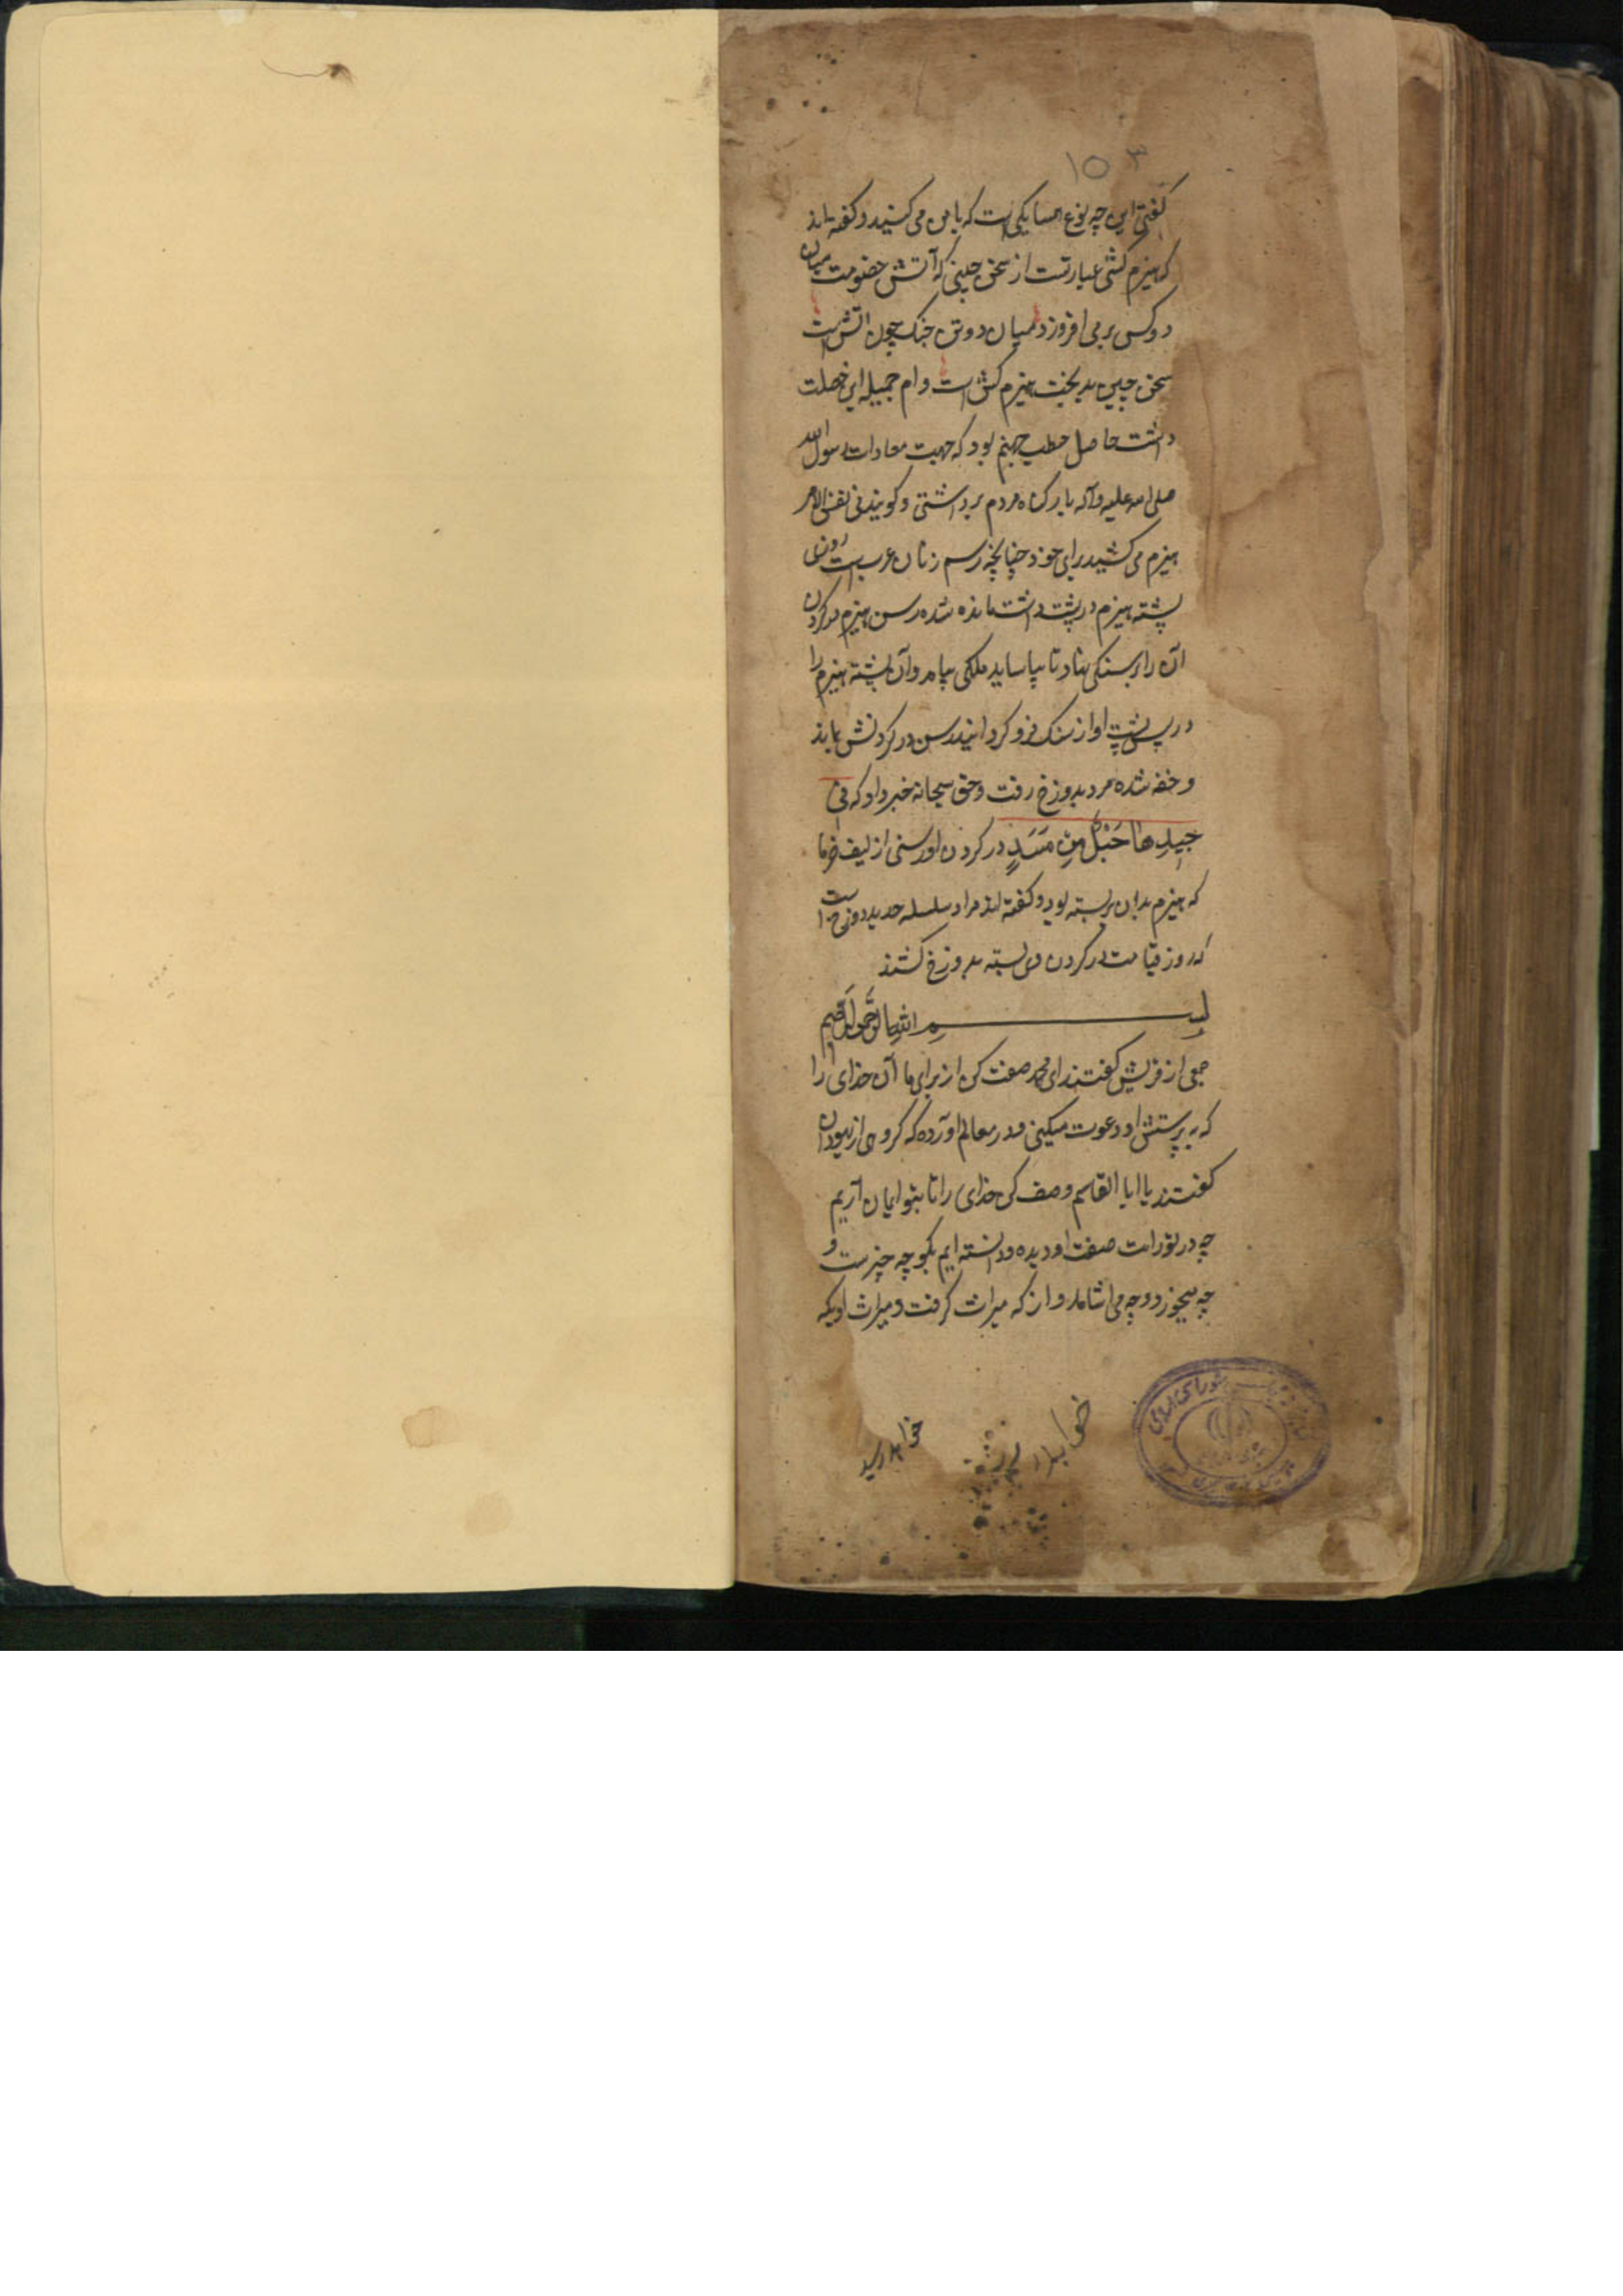 ۱۵۳
گفتی این چه نوع همسایگی است که با من می کنید و گفته اند
که هیزم کشی عبارتست از سخن چینی که آتش خصومت میان
دو کس بر می افروزد میان دو تن جنک چون اتش است
سخن چین بدبخت هیزم کش است و ام جمیله این خصلت
داشت حاصل حطب جهنم بود که جهت معادات رسول الله
صلی الله علیه وآله بار کناه مردم برداشتی و کویند فی نفس الامر
هیزم می کشید برای خود چنانچه رسم زنان عرب است روزی
پشته هیزم در پشت داشت مانده شده رسن هیزم در کردن
آن را بر سنکی نهاد تا بیاساید ملکی بیامد و آن پشته هیزم را
در پس پشت او از سنک فرو کردانید رسن در کردنش بماند
و خفه شده مرد بدوزخ رفت و حق سبحانه خبر داد که فی
جِیدِهَا حَبْلٌ مِن مَسَدٍ در کردن او رسنی از لیف خرما
که هیزم بدان بر بسته بود و کفته اند مراد سلسله حدید دوزخ است
که روز قیامت در کردن وی بسته بدوزخ کشند
بسم الله الرحمن الرحیم
جمعی از قریش کفتند ای محمد صفت کن از برای ما آن خدای را
که به پرستش او دعوت میکنی و در معالم آورده که کروهی از یهودان
کفتند یا ابا القاسم وصف کن خدای را تا بتو ایمان آریم
چه در تورات صفت او دیده و دانسته ایم بکو چه چیزست و
چه میخورد و چه می اشامد و از که میراث کرفت و میراث او بکه
خواهد رسید
شورای اسلامی